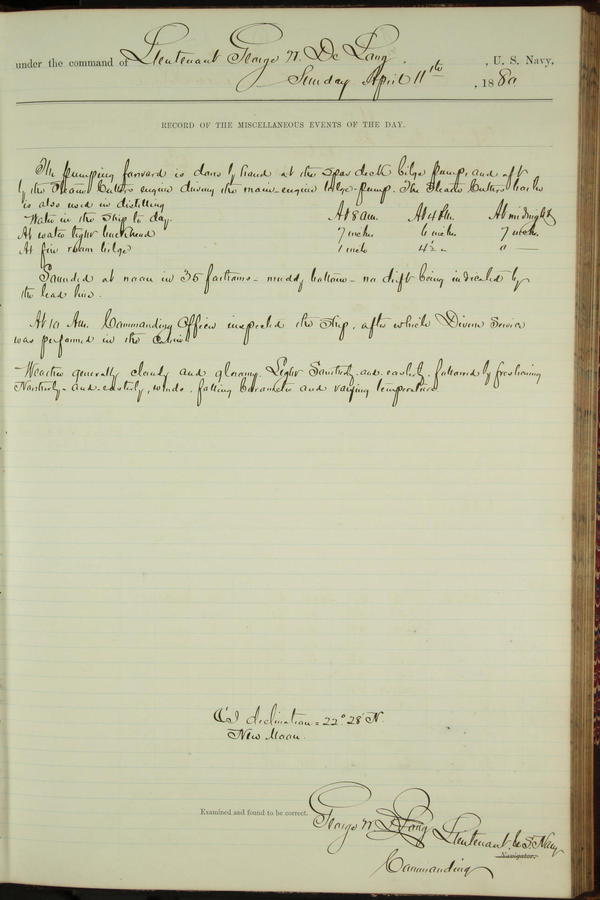 under the command of Lieutenant George W. De Long, U. S. Navy,
Sunday April 11th, 1880
RECORD OF THE MISCELLANEOUS EVENTS OF THE DAY.
The pumping forward is done by hand at the spar deck bilge pump, and aft
by the Steam Cutters engine driving the main-engine bilge-pump. The Steam Cutters boiler
is also used in distilling
Water in the ship to day. At 8 am. At 4 Pm. At midnight
At water tight bulkhead 7 inches 6 inches 7 inches
At fire room bilge 1 inch 4½ "
Sounded at noon in 35 fathoms - muddy bottom - no drift being indicated by
the lead line.
At 10 Am. Commanding Officer inspected the ship, after which Divine Service
was performed in the Cabin
Weather generally cloudy and gloomy. Light Southerly-and-easterly, followed by freshening
Northerly-and-easterly, winds. falling barometer and varying temperature
declination = 22° 28' N
New Moon.
Examined and found to be correct.
George W. De Long Lieutenant U.S. Navy
Navigator.
Commanding